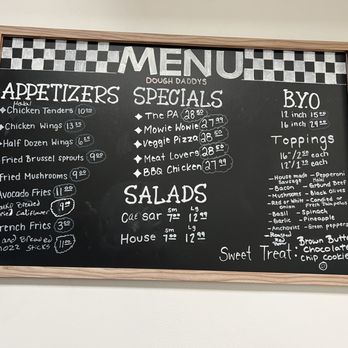 MENU
DOUGH DADDYS
APPETIZERS
Halal
Chicken Tenders 10.50
Chicken Wings 13.50
Half Dozen Wings 6.50
Fried Brussel sprouts 9.00
Fried Mushrooms 9.00
Avocado Fries 11.00
Fried Cauliflower 9.00
French Fries 3.00
Hand Breaded
mozz sticks 11.00
SPECIALS
The PA 28.50
Mowie Wowie 27.99
Veggie Pizza 28.50
Meat Lovers 28.50
BBQ Chicken 27.99
SALADS
sm Lg
Caesar 7.00 12.99
sm Lg
House 7.00 12.99
B.Y.O
12 inch 15.00
16 inch 24.00
Toppings
16"/2.00 each
12"/1.00 each
-House made -Pepperoni
Sausage
-Bacon -Ground Beef
-Mushrooms -Black Olives
-Red or White -Candied or
onion
-Basil -Spinach
-Garlic -Pineapple
-Anchovies -Green peppers
-Roasted
Red
Sweet Treat: Brown Butter
Chocolate
chip cookie